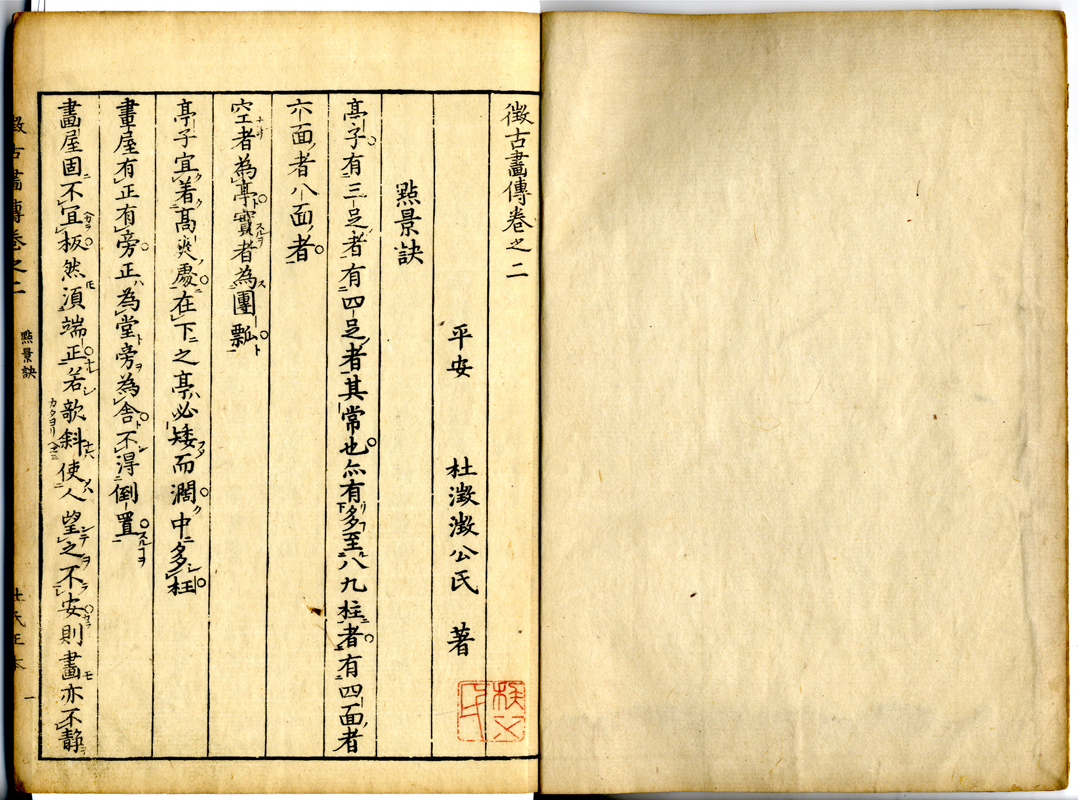 徵古畫傳卷之二
平安 杜澂澂公氏 著
點景訣
亭子有三足者有四足者其常也亦有多至八九柱者有四面者
六面者八面者
空者為亭實者為團瓢
亭子宜着髙爽處在下之亭必矮而濶中多柱
畫屋有正有旁正為堂旁為舎不得倒置
畫屋固不宜板然湏端正若欹斜使人望之不安則畫亦不静
徵古畫傳卷之二 點景訣 一